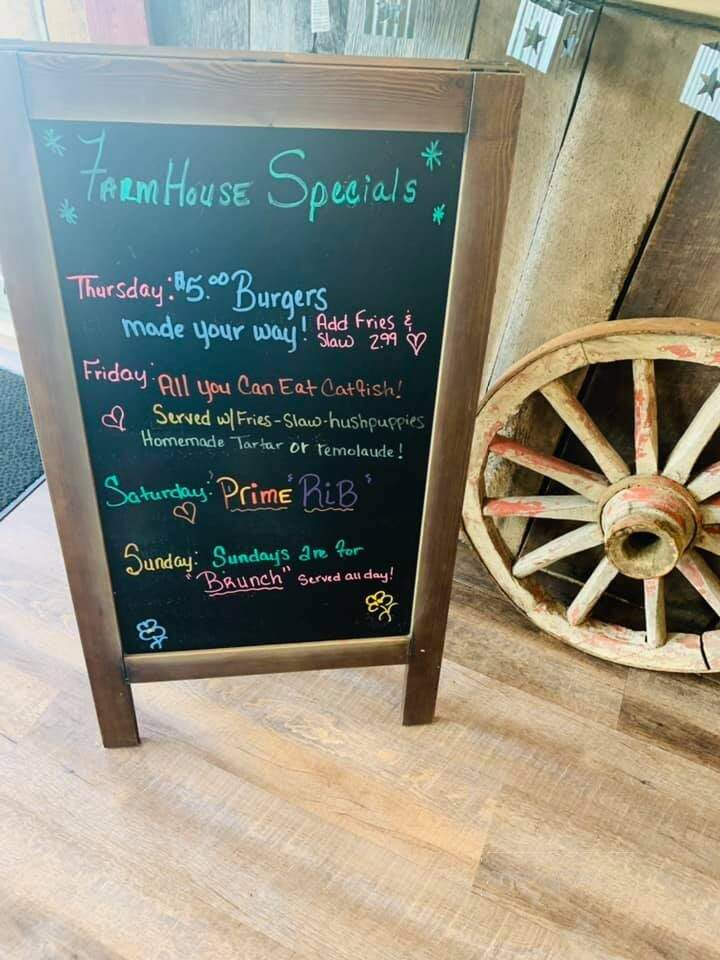 FARMHOUSE Specials
Thursday: $5.00 Burgers
made your way! Add Fries &
Slaw 2.99
Friday: All you Can Eat Catfish!
Served w/Fries-Slaw-hushpuppies
Homemade Tartar or remolaude!
Saturday: Prime "RiB"
Sunday: Sundays are for
"BRunch" Served all day!